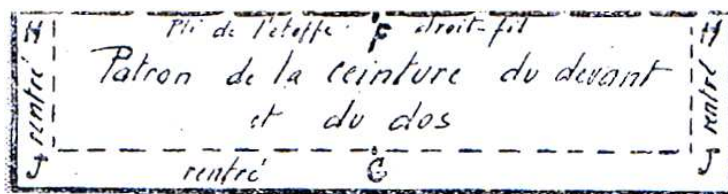 H Pli de l'étoffe F droit-fil H
rentré Patron de la ceinture du devant rentré
et du dos
J rentré G J